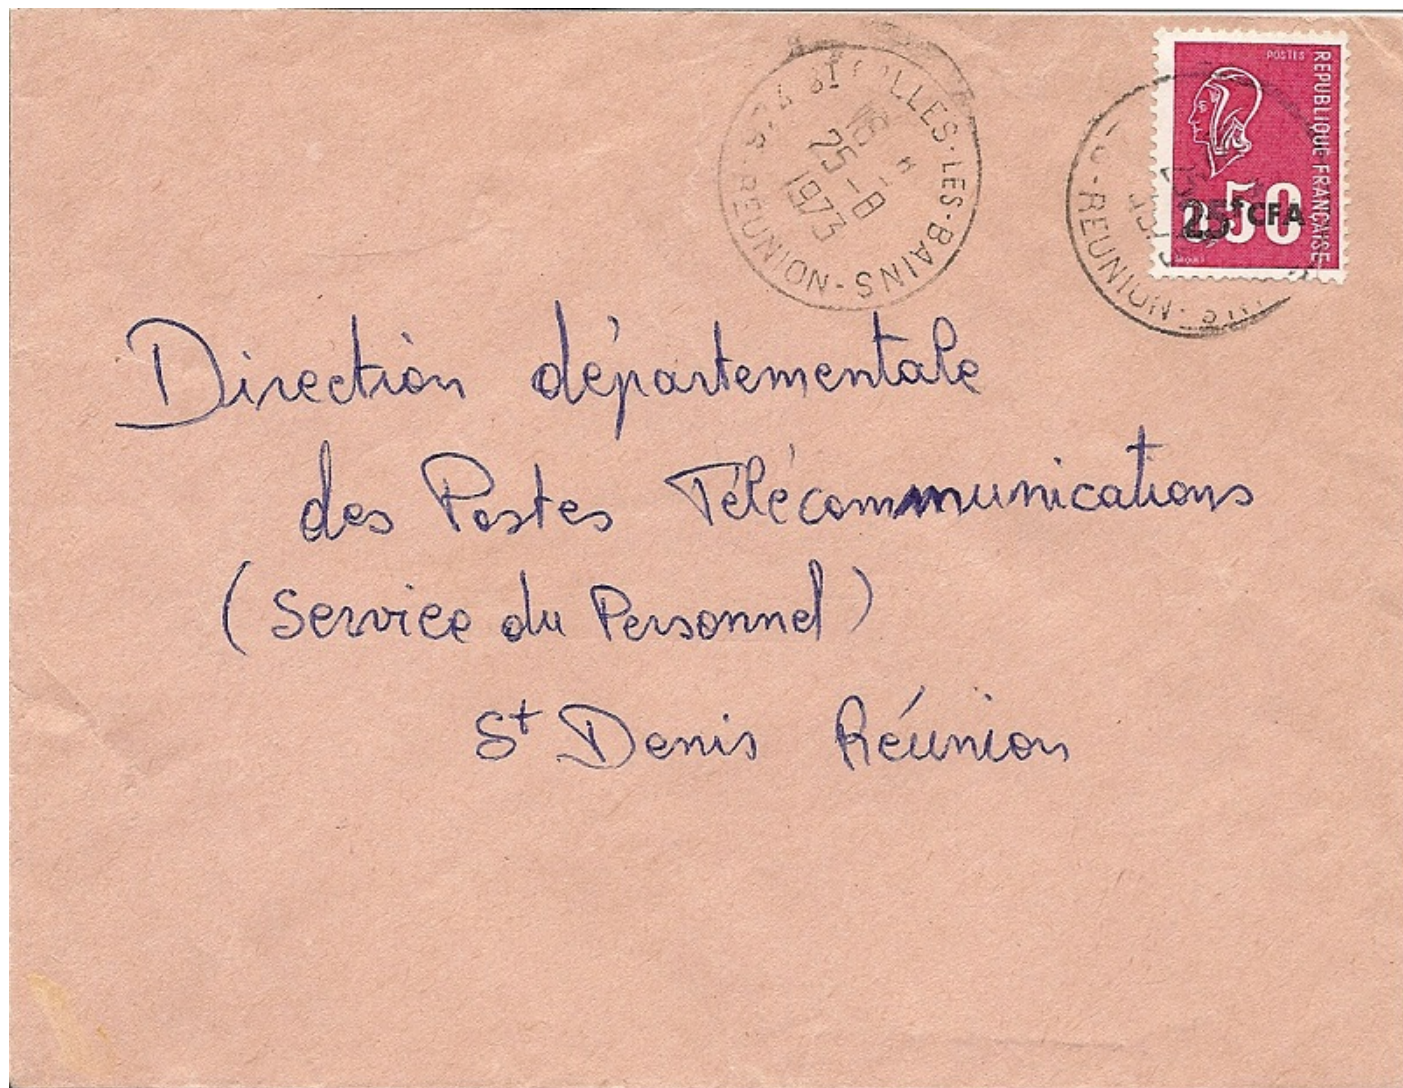 ST GILLES-LES-BAINS
18 H
25-8
1973
REUNION
POSTES
REPUBLIQUE FRANÇAISE
0,50
25F CFA
REUNION
Direction départementale
des Postes Télécommunications
(Service du Personnel)
St Denis Réunion